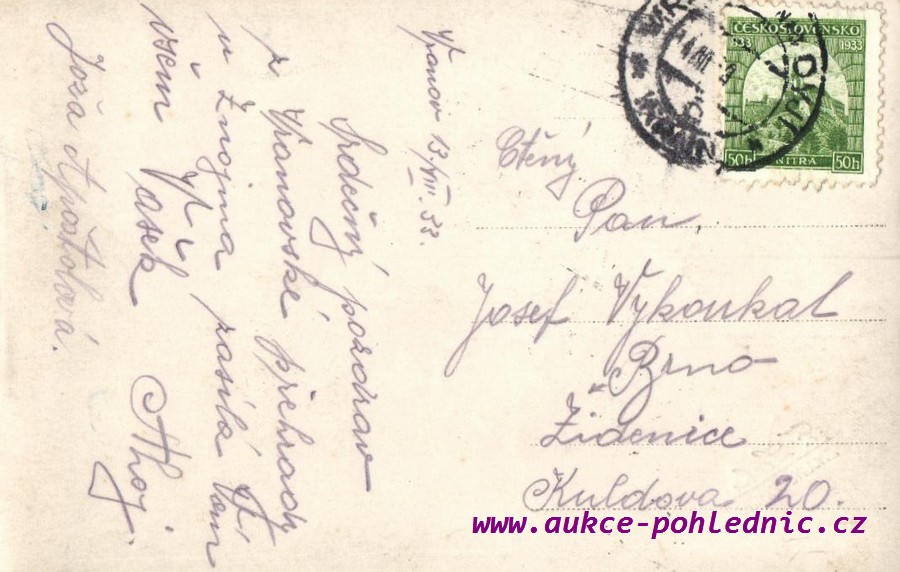 Vranov 13/VII. 33.
Srdečný pozdrav
z Vranovské přehrady
u Znojma zasílá Vám
všem Vašek Ahoj.
Joža Apoštolová.
ČESKOSLOVENSKO
833 1933
50h NITRA 50h
Ctěný
Pan
Josef Vykoukal
Brno
Židenice
Kuldova 20.
www.aukce-pohlednic.cz